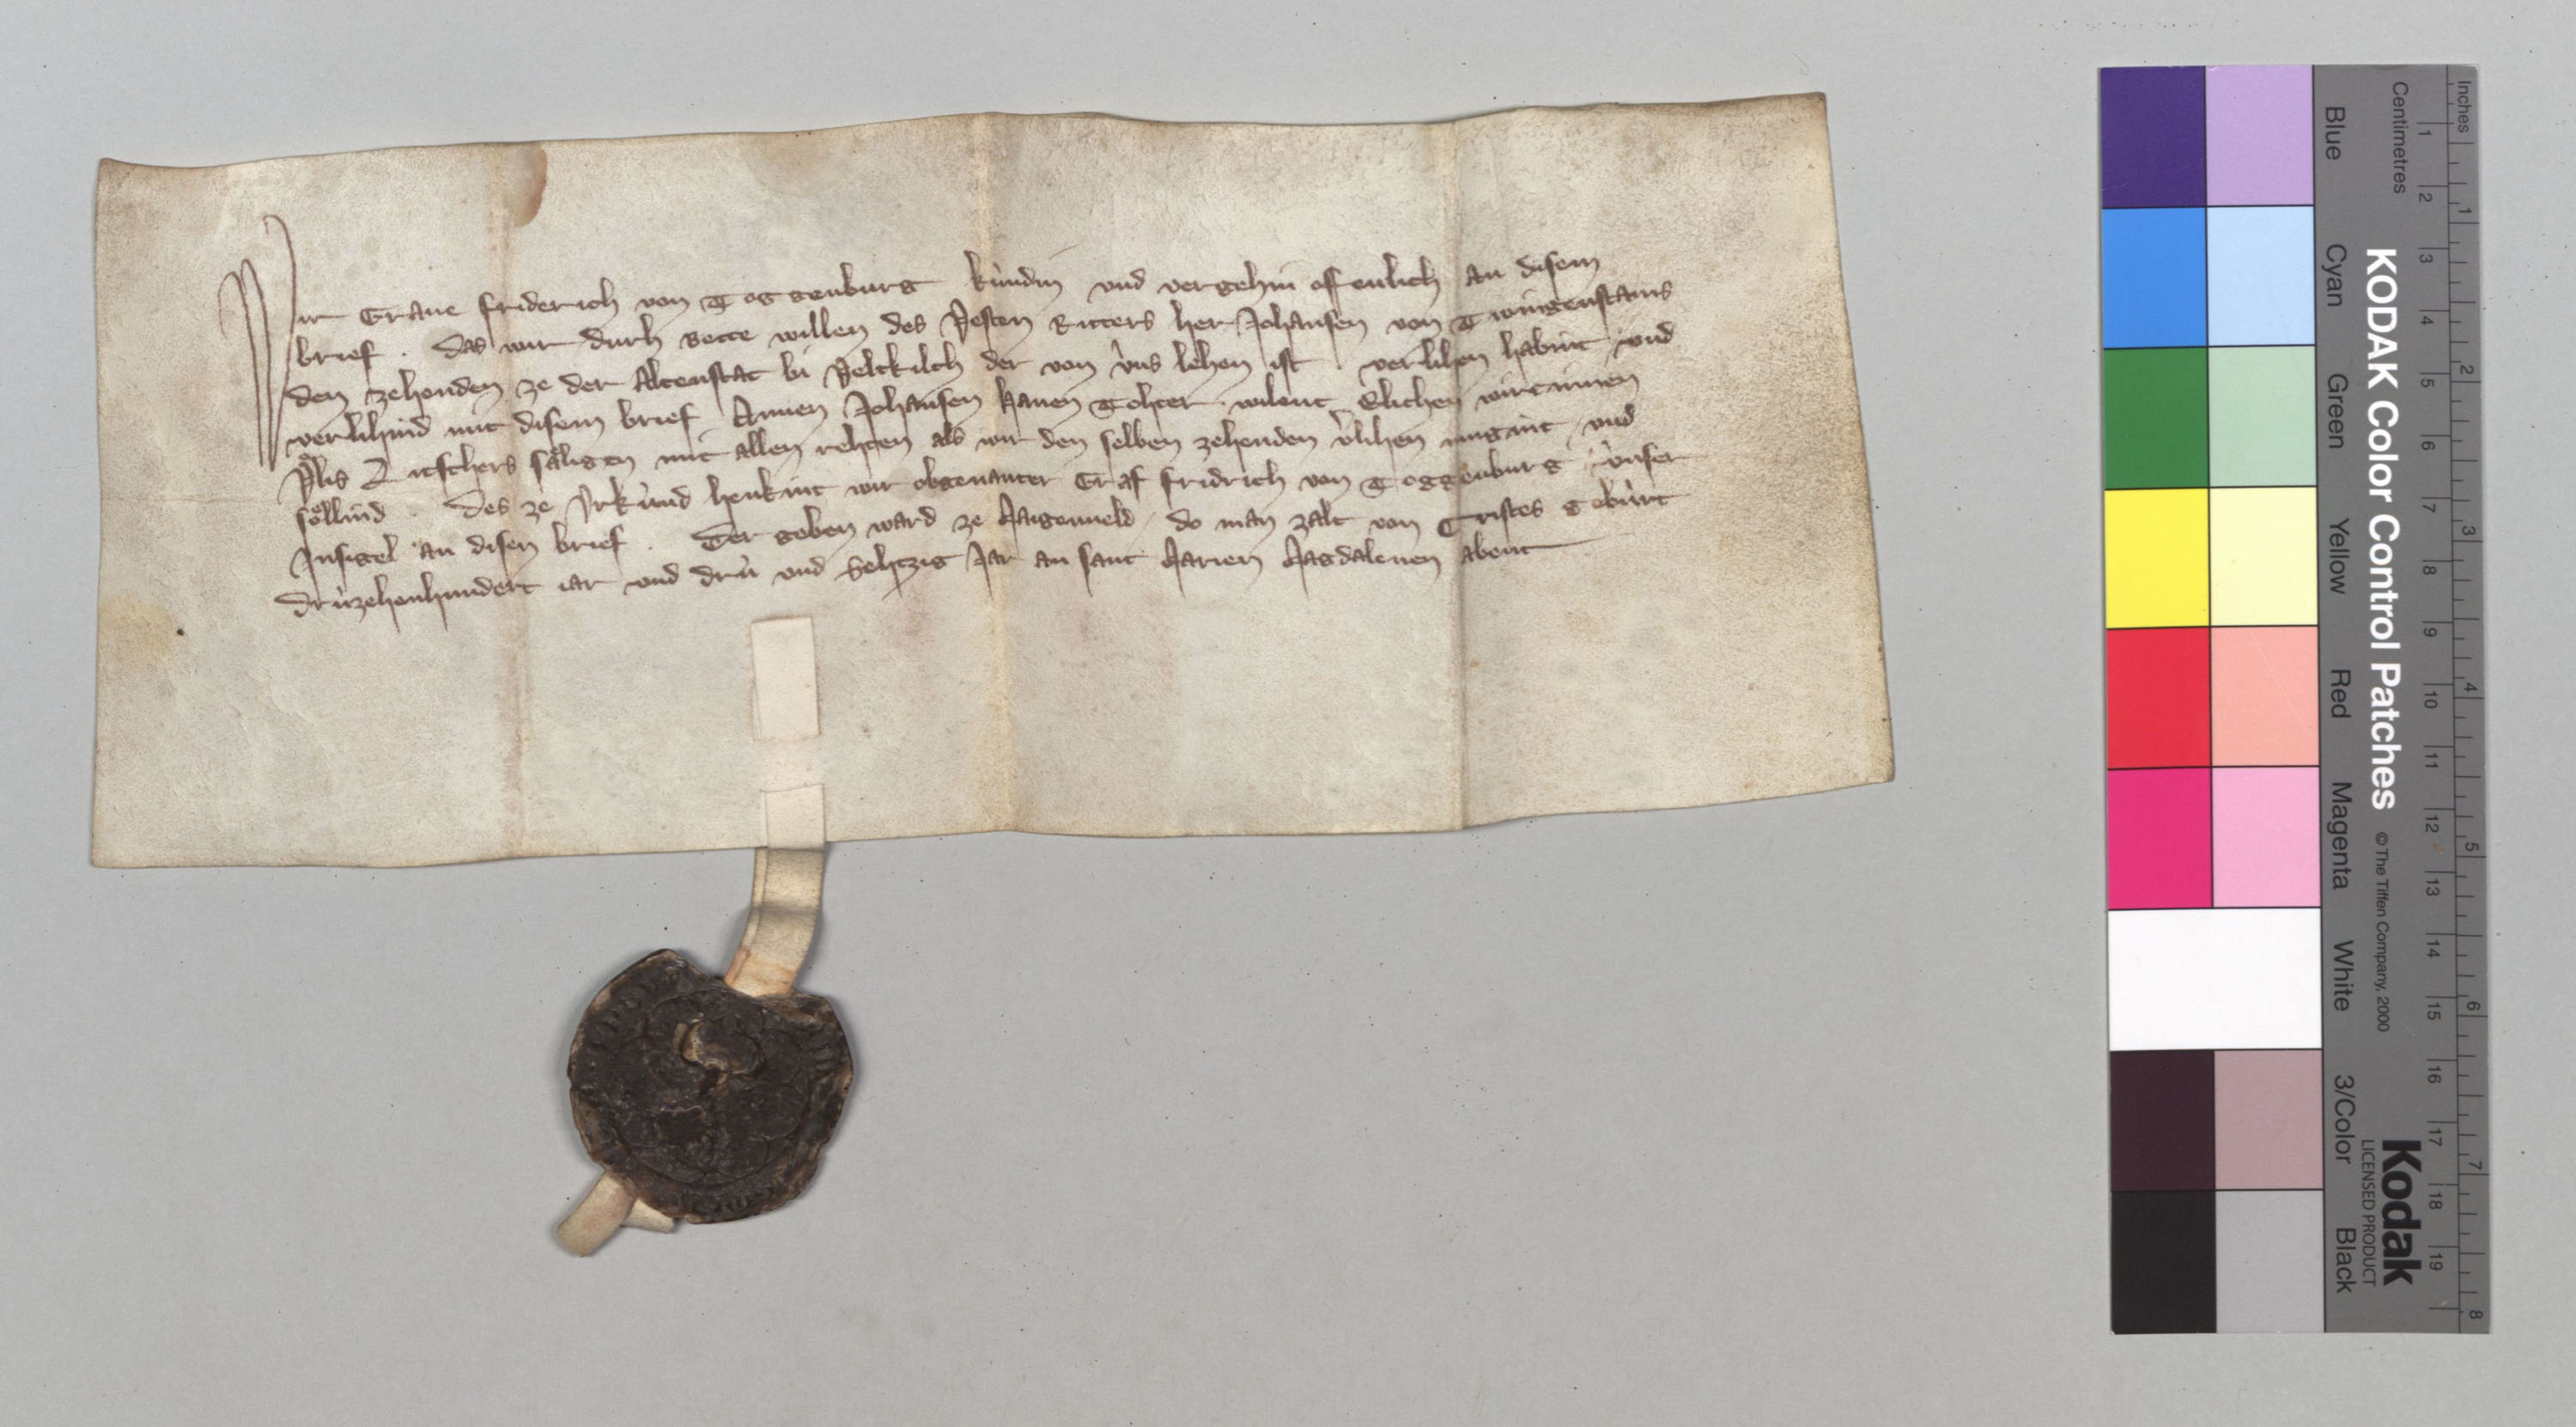 Wir Graue friderich von Toggenburg kùndin vnd vergehin offenlich an disem
brief . das wir durh bette willen des Vesten Ritters her Johansen von Twingenstains
den zehenden ze der Altenstat bi Veltkilch der von ùns lehen ist . verlihen habint vnd
verlihind mit disem brief Annen Johansen hanen Tohter wilent Elichen wirtinnen
Vͦlis Litschers sáligen mit allen rehten als wir den selben zehenden v̾lihen mugint vnd
söllind . des ze Vrkùnd henkint wir obgenanter Graf fridrich von Toggenburg ùnser
Insigel an disen brief . Der geben ward ze Maigenueld do man zalt von Cristes gebùrt
drùzehenhundert iar vnd drù vnd Sehtzig Jar an sant Marien Magdalenen abent
KODAK Color Control Patches © The Tiffen Company, 2000
Kodak
LICENSED PRODUCT
Blue Cyan Green Yellow Red Magenta White 3/Color Black
Centimetres 1 2 3 4 5 6 7 8 9 10 11 12 13 14 15 16 17 18 19
Inches 1 2 3 4 5 6 7 8